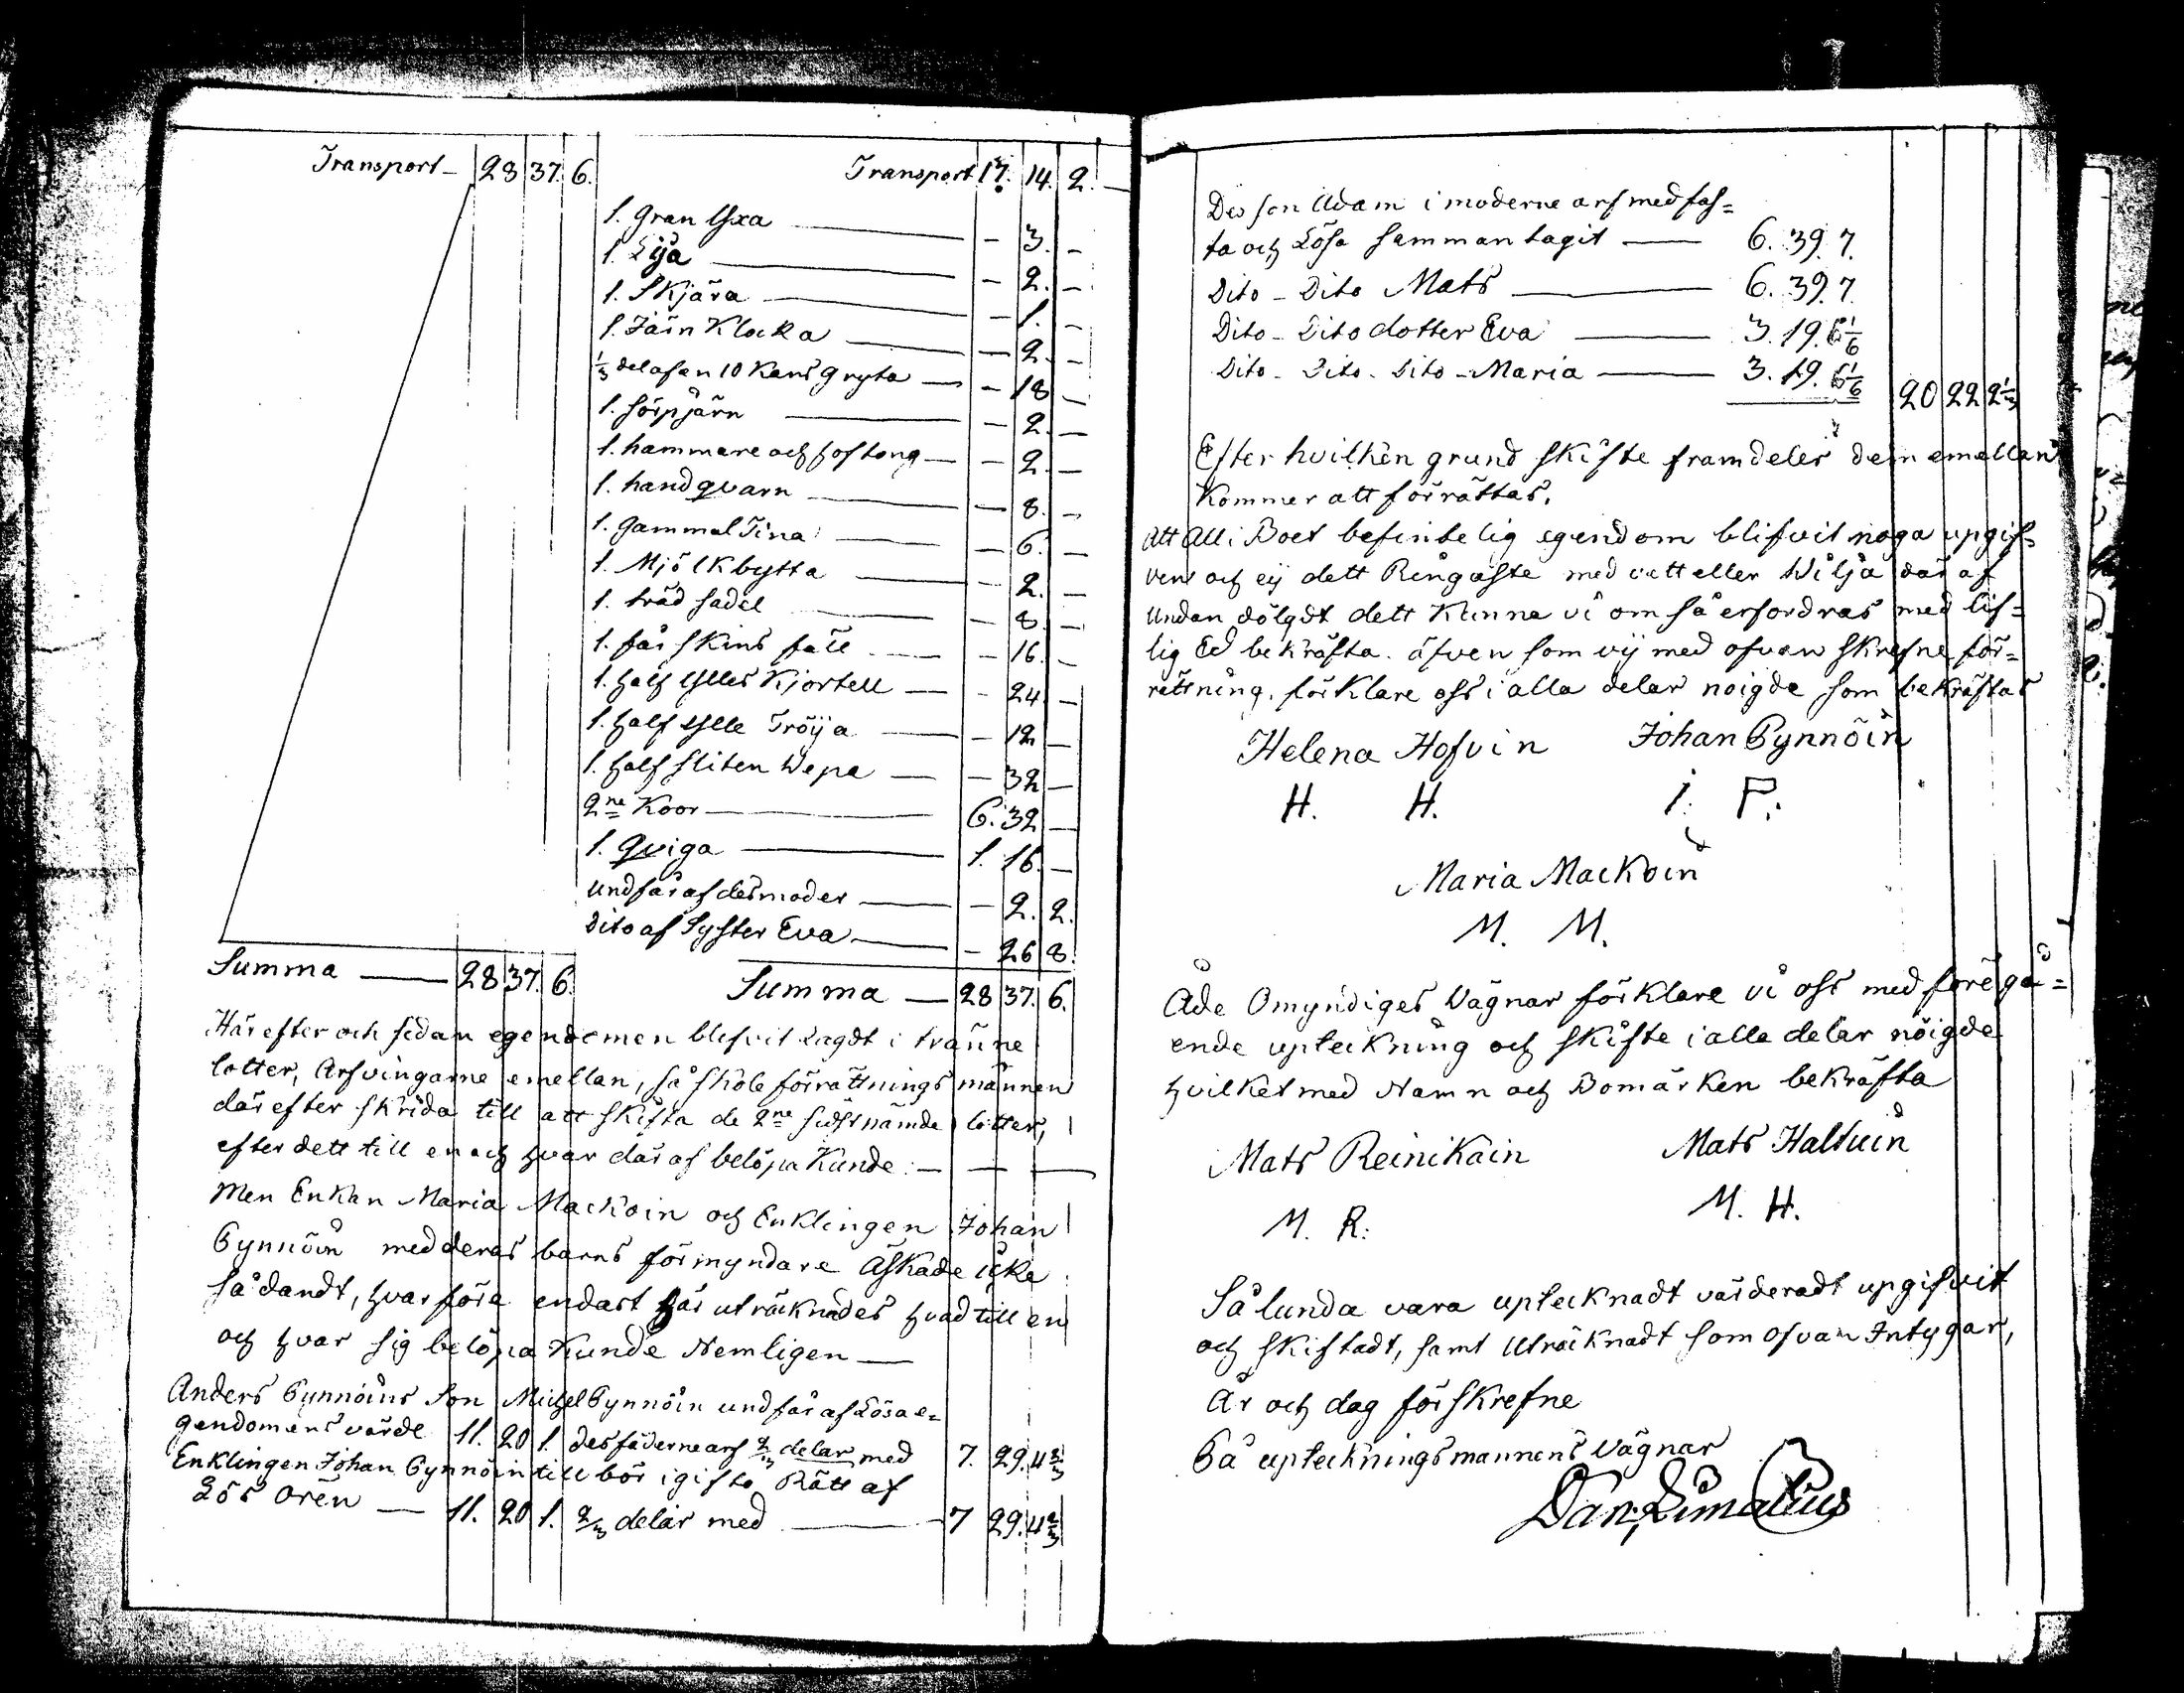 Transport - 28 37. 6. Transport 17. 14. 2.
1. gran Yxa - 3. -
1. Lija - 2. -
1. Skjära - 1. -
1. Järn Klocka - 2. -
1/3 del af en 10 Kans gryta - 18 -
1. sörpjärn - 2. -
1. hammare och hoftong - 2. -
1. handqvarn - 8. -
1. gammal Tina - 6. -
1. Mjölkbytta - 2. -
1. träd sadel - 8. -
1. får skins fäll - 16. -
1. half ylles Kjortell - 24. -
1. half ylle Tröija - 12 -
1. half sliten Wepa - 32 -
2ne Koor 6. 32 -
1. qviga 1. 16. -
undfår af des moder - 2. 2.
Dito af Syster Eva - 26 8.
Summa 28 37. 6. Summa 28 37. 6.
Här efter och sedan egendomen blefvit Lagdt i tränne
lotter, Arfvingarne emellan, så skole förrättnings männen
där efter skrida till att skifta de 2ne sidstnämde lotter,
efter dett till en och hvar där af belöpa Kunde: -
Men Enkan Maria Mackoin och Enklingen Johan
Pynnöin med deras barns förmyndare Äskade icke
sådandt, hvarföre endast här uträcknades hvad till en
och hvar sig belöpa Kunde Nemligen
Anders Pynnöins Son Michel Pynnöin undfår af Lösa e=
gendomens värde 11. 20 1. des fäderne arf 2/3 delar med 7. 29. 4 2/3
Enklingen Johan Pynnöin tillbör i gifto Rätt af
Lös ören 11. 20 1. 2/3 delar med 7 29. 4 2/3
Des son Adam i moderne arf med fas=
ta och Lösa samman tagit 6. 39. 7.
Dito - Dito Mats 6. 39. 7
Dito - Dito dotter Eva 3. 19. 6 1/6
Dito - Dito - Dito - Maria 3. 19. 6 1/6 20 22 2 1/3
Efter hvilken grund skifte framdeles dem emellan
Kommer att förrättas.
Att All i Boet befintelig egendom blifvit noga upgif=
ven och eij dett Ringaste med vett eller Wilja där af
undan dölgdt dett Kunne vi om så erfordras med lif=
lig Ed bekräfta. äfven som vij med ofvan skrefne för=
rättning, förklare oss i alla delar noigde som bekräftas
Helena Hofvin Johan Pynnöin
H. H. I. P.
Maria Mackoin
M. M.
Å de Omyndiges Vägnar förklare vi oss med föregå=
ende upteckning och skifte i alla delar nöigde
hvilket med Namn och Bomärken bekräfta
Mats Reinikain Mats Haltuin
M. R. M. H.
Sålunda vara uptecknadt värderadt upgifvit
och skiftadt, samt Uträcknadt som ofvan Intygar,
År och dag förskrefne
På upteckningsmannens Vägnar
Dan; Limatius